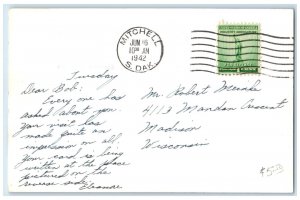 MITCHELL
JUN 16
10 30 AM
1942
S. DAK.
Tuesday
Dear Bob:
Every one has
asked about you.
Your visit has
made quite an
impression on all.
Your card is being
written at the place
pictured on the
reverse side.
Eleanore
Mr. Robert
4113 Mandan Crescent
Madison
Wisconsin